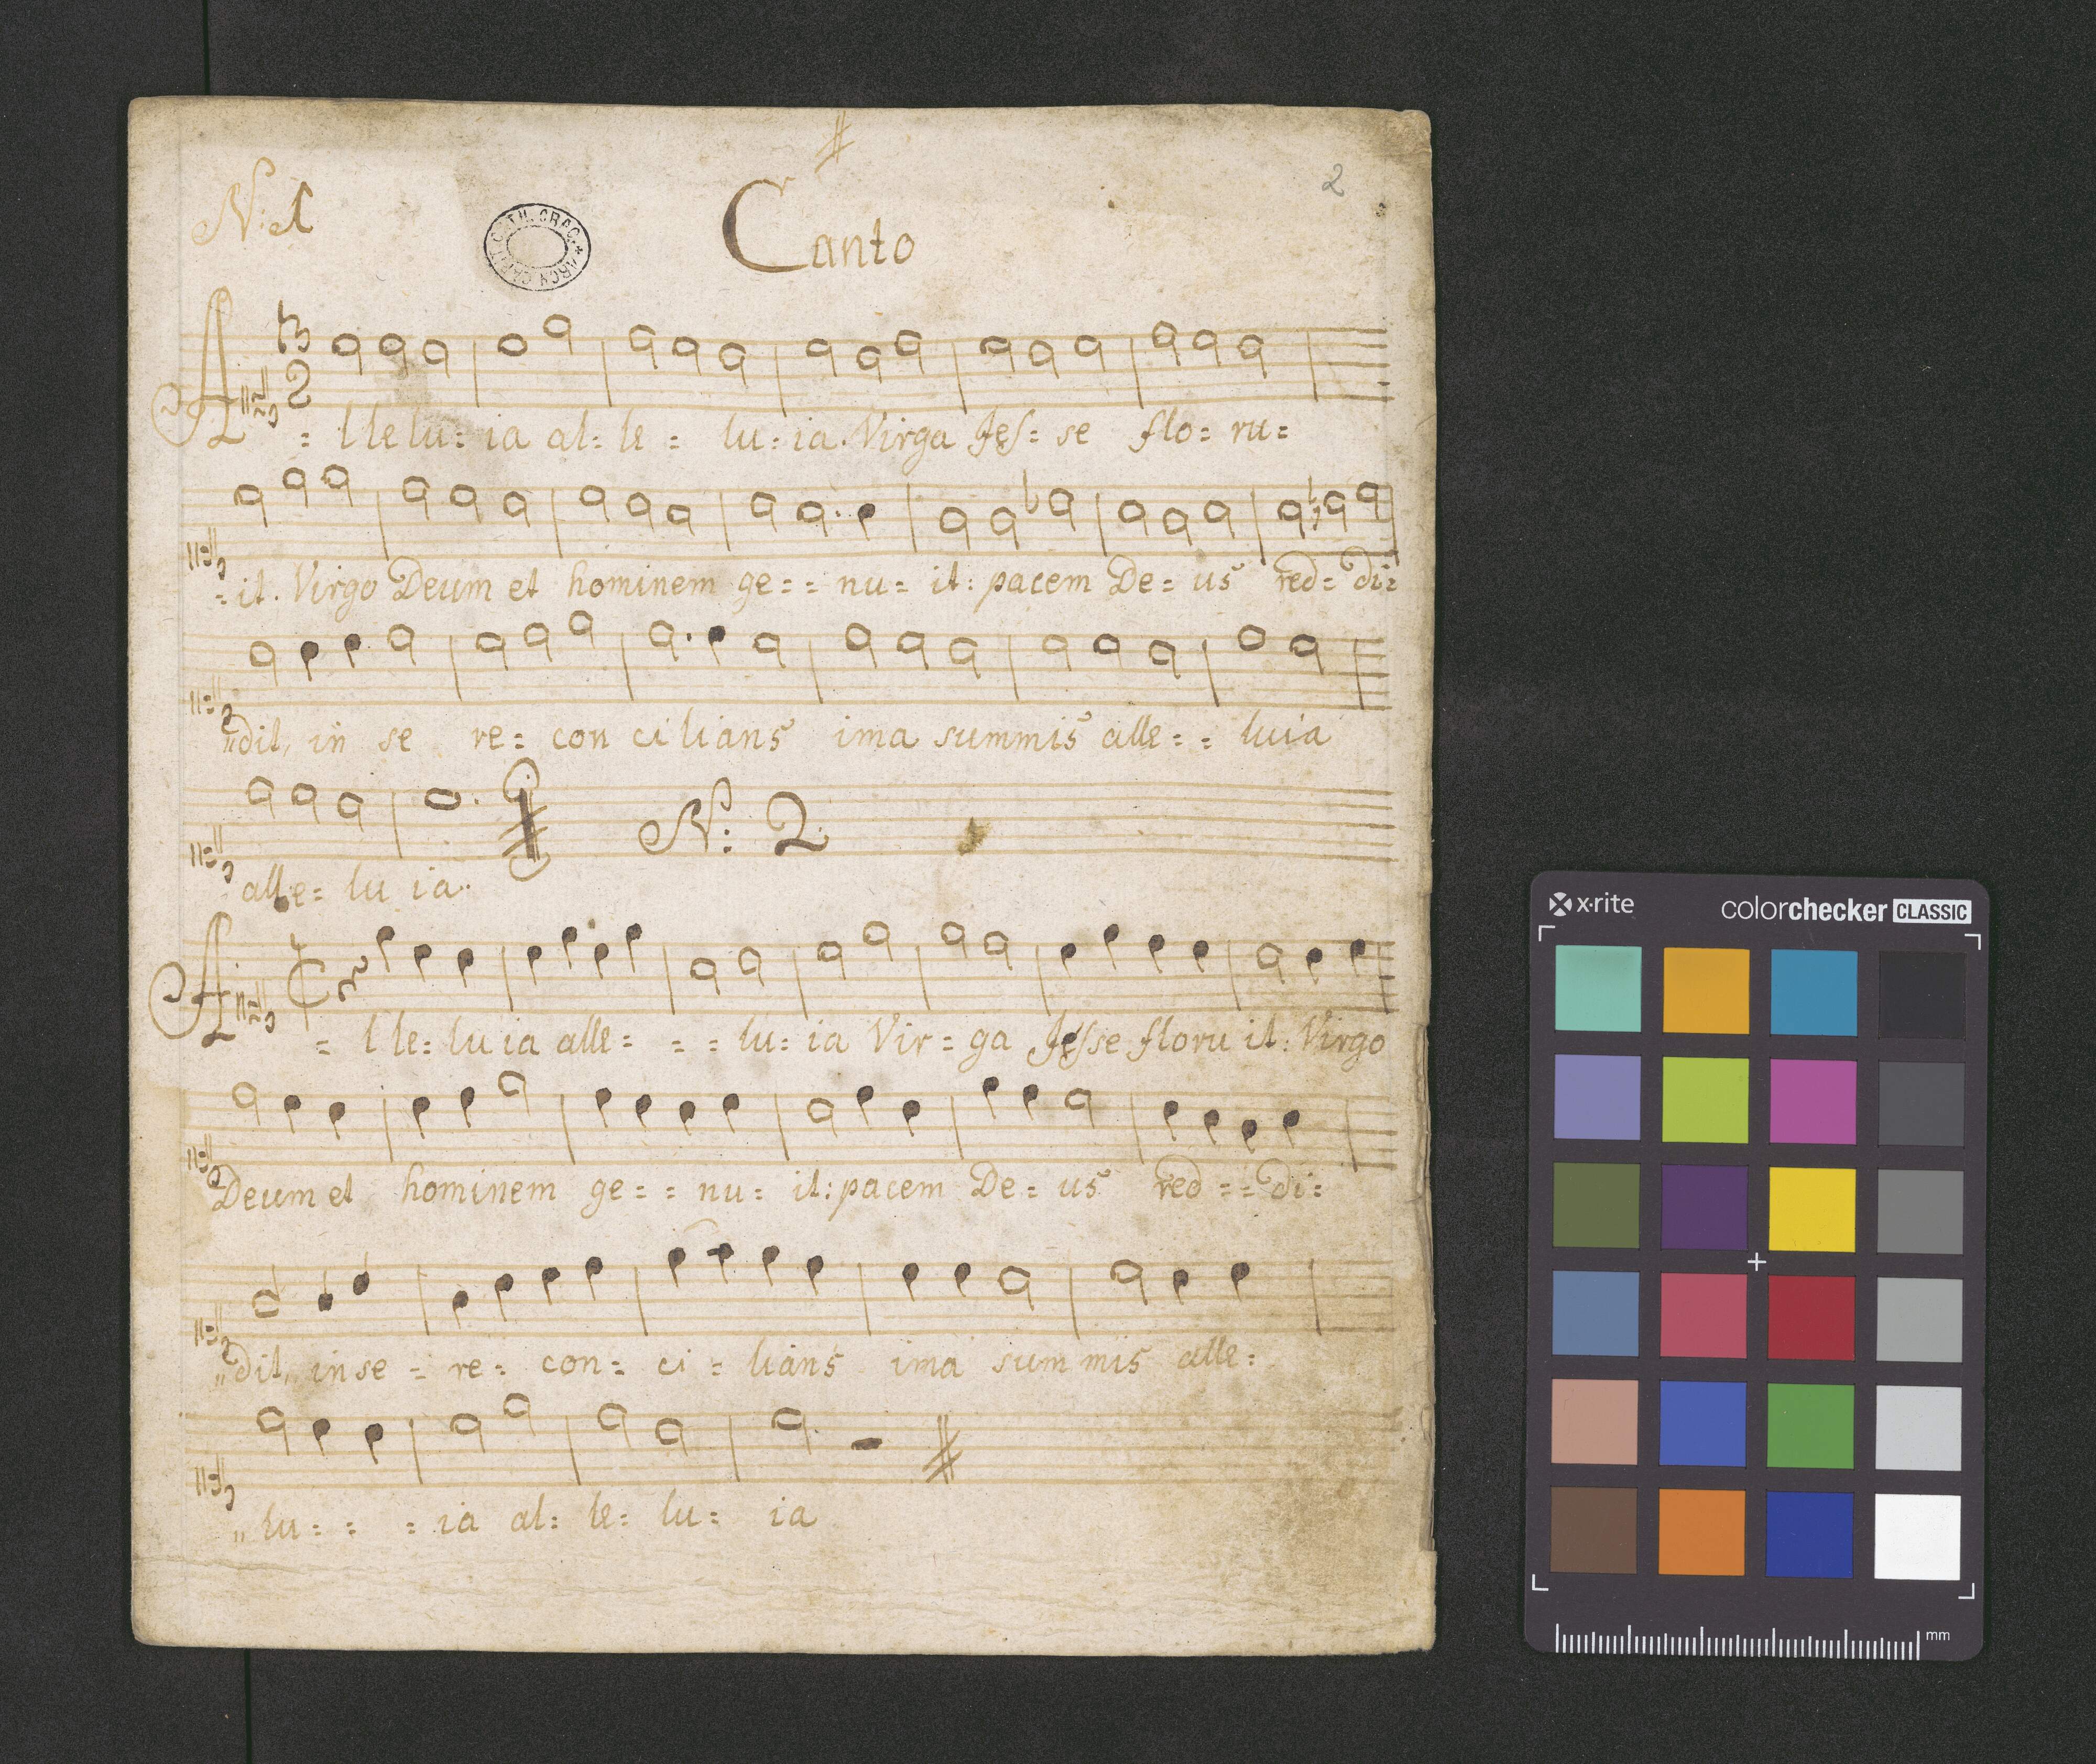 2
N. 1
Canto
ARCH. CAPIT. CATH. CRAC.
3
2
A = lle lu: ia al: le = lu: ia. Virga Jeſ= se flo: ru=
= it. Virgo Deum et hominem ge= = nu= it: pacem De= us red= di=
dit, in se re= con ci lians ima summis alle= = luia
N: 2
alle= lu ia.
A = l le= lu ia alle= = = lu: ia Vir= ga Jeſse floru it: Virgo
Deum et hominem ge= = nu= it: pacem De= us red = = di=
dit, in se = re= con= ci = lians ima sum mis alle=
lu= = = ia al= le= lu= ia
x·rite
colorchecker CLASSIC
mm